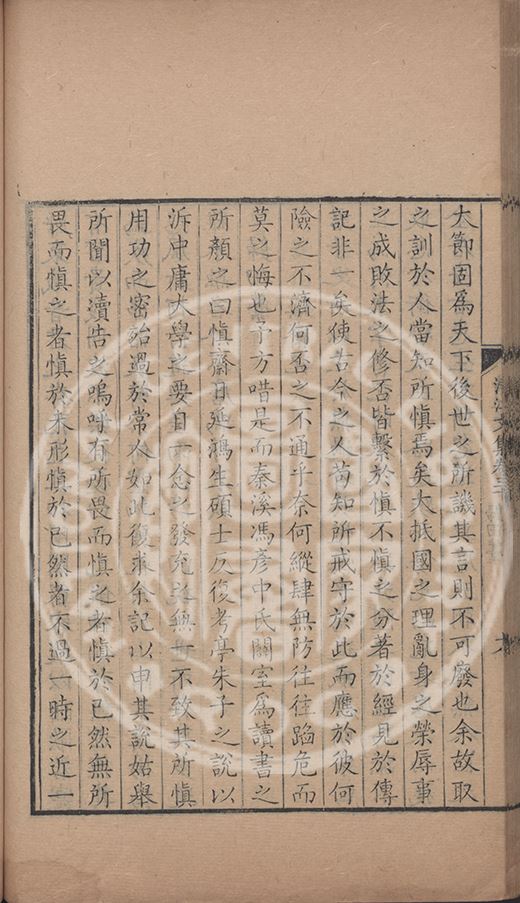 大節固爲天下後世之所譏其言則不可廢也余故取
之訓於人當知所愼焉矣大抵國之理亂身之榮辱事
之成敗法之修否皆繫於愼不愼之分著於經見於傳
記非一矣使古今之人苟知所戒守於此而應於彼何
險之不濟何否之不通乎奈何縱肆無防往往蹈危而
莫之悔也予方唶是而秦溪馮彥中氏闢室爲讀書之
所顏之曰愼齋日延鴻生碩士反復考亭朱子之說以
泝中庸大學之要自一念之發充之無一不致其所愼
用功之密殆過於常人如此復求余記以申其說姑舉
所聞以瀆告之嗚呼有所畏而愼之者愼於已然無所
畏而愼之者愼於未形愼於已然者不過一時之近一
文集卷